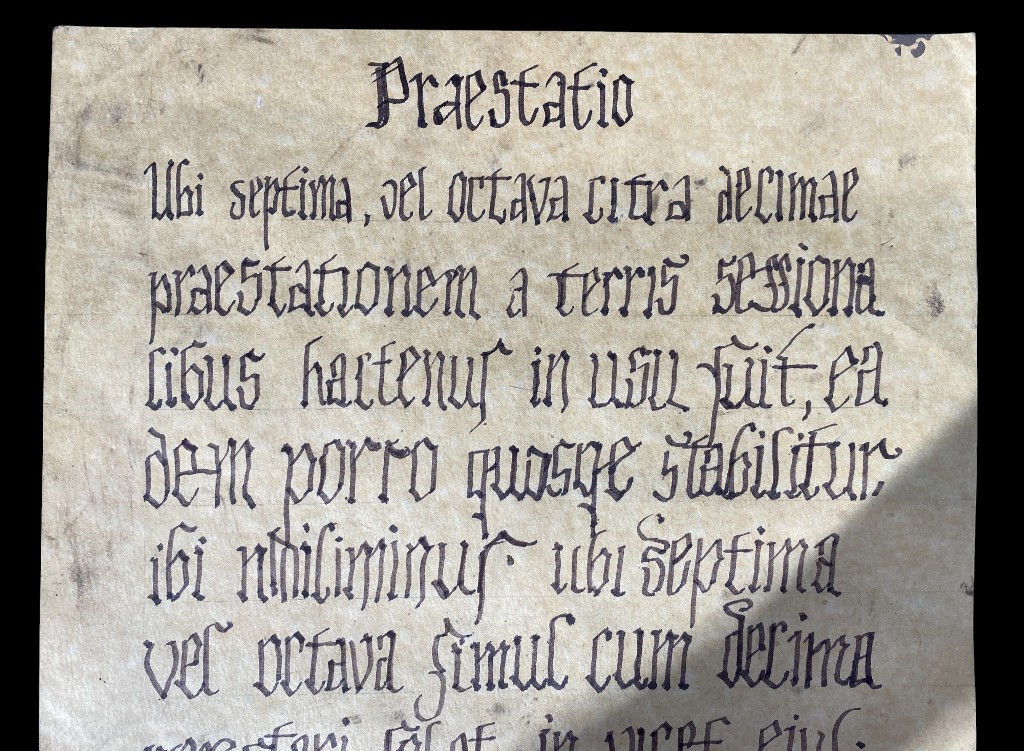 Praestatio
Ubi septima, vel octava citra decimae
praestationem a terris sessiona
libus hactenus in usu fuit, ea
dem porro quosqe stabilitur.
ibi nihiliminus. ubi septima
vel octava simul cum decima
praestari solet in vicef ejus.